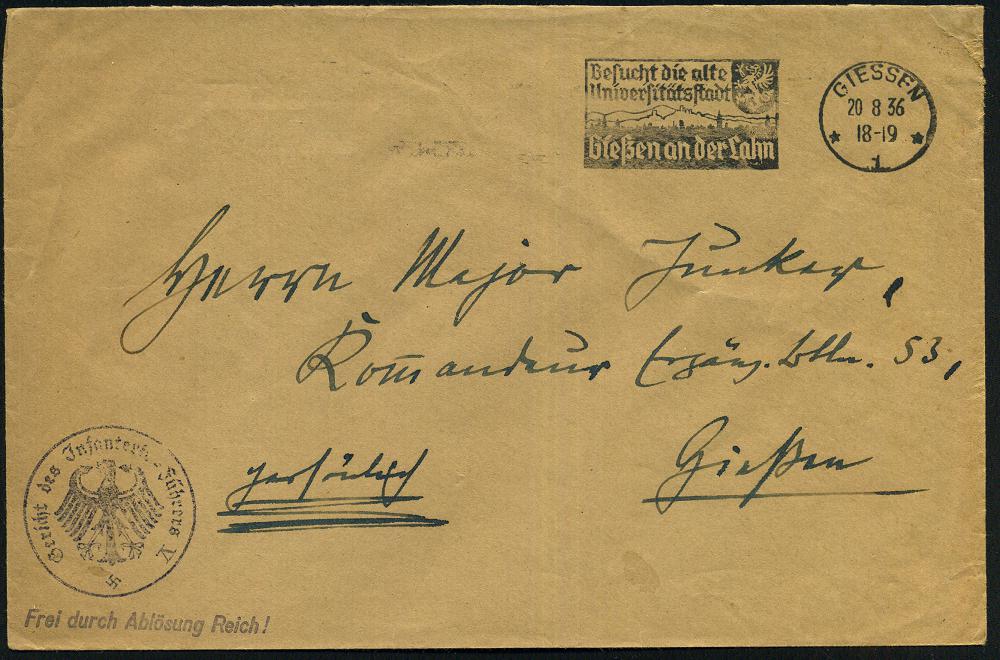 Besucht die alte
Universitätsstadt
Gießen an der Lahn
GIESSEN
20 8 36
18-19
1
Herrn Major Junker,
Kom̅andeur Ergänz. Btln. 53,
Gießen
persönlich
Gericht des Infanterie-Führers V
Frei durch Ablösung Reich!